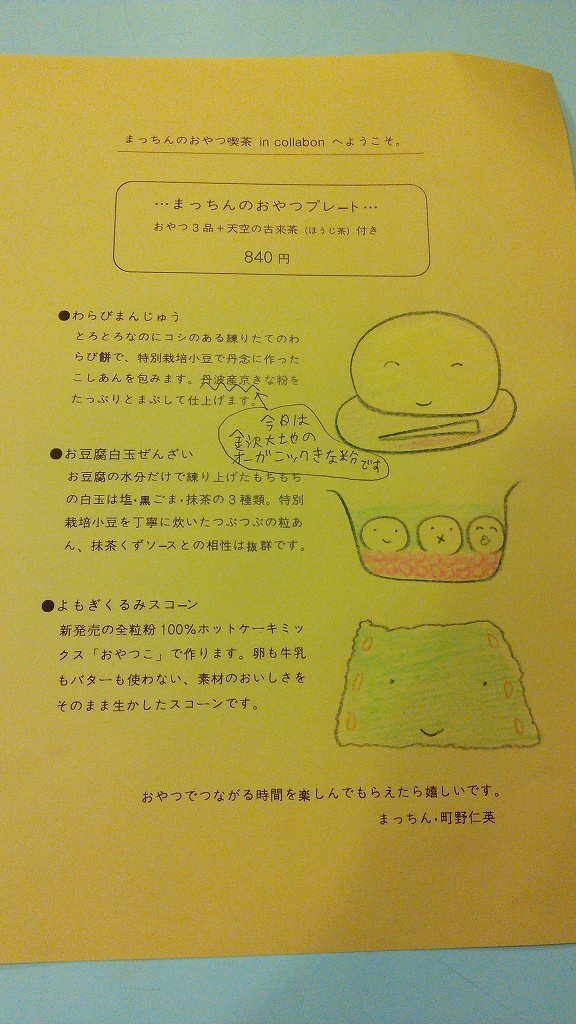 まっちんのおやつ喫茶 in collabon へようこそ。
…まっちんのおやつプレート…
おやつ3品+天空の古来茶（ほうじ茶）付き
840 円
●わらびまんじゅう
とろとろなのにコシのある練りたてのわ
らび餅で、特別栽培小豆で丹念に作った
こしあんを包みます。丹波産京きな粉を
たっぷりとまぶして仕上げます。
今日は
金沢大地の
オーガニックきな粉です
●お豆腐白玉ぜんざい
お豆腐の水分だけで練り上げたもちもち
の白玉は塩・黒ごま・抹茶の3種類。特別
栽培小豆を丁寧に炊いたつぶつぶの粒あ
ん、抹茶くずソースとの相性は抜群です。
●よもぎくるみスコーン
新発売の全粒粉100%ホットケーキミッ
クス「おやつこ」で作ります。卵も牛乳
もバターも使わない、素材のおいしさを
そのまま生かしたスコーンです。
おやつでつながる時間を楽しんでもらえたら嬉しいです。
まっちん・町野仁英